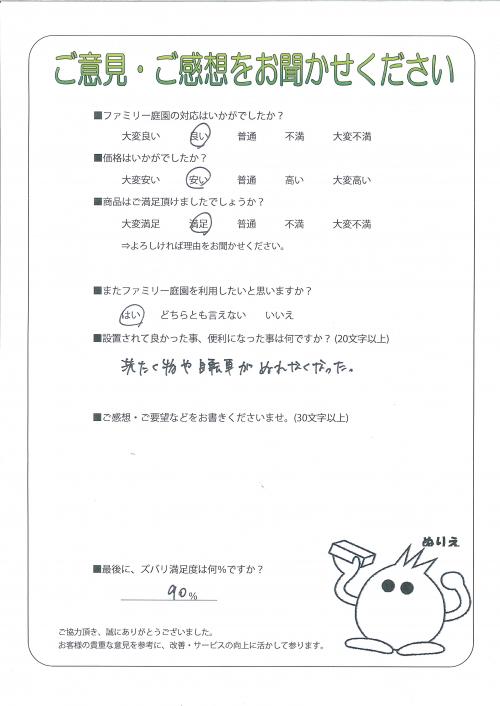 ご意見・ご感想をお聞かせください
■ファミリー庭園の対応はいかがでしたか？
大変良い 良い 普通 不満 大変不満
■価格はいかがでしたか？
大変安い 安い 普通 高い 大変高い
■商品はご満足頂けましたでしょうか？
大変満足 満足 普通 不満 大変不満
⇒よろしければ理由をお聞かせください。
■またファミリー庭園を利用したいと思いますか？
はい どちらとも言えない いいえ
■設置されて良かった事、便利になった事は何ですか？(20文字以上)
洗たく物や自転車がぬれなくなった。
■ご感想・ご要望などをお書きくださいませ。(30文字以上)
ぬりえ
■最後に、ズバリ満足度は何%ですか？
90%
ご協力頂き、誠にありがとうございました。
お客様の貴重な意見を参考に、改善・サービスの向上に活かして参ります。